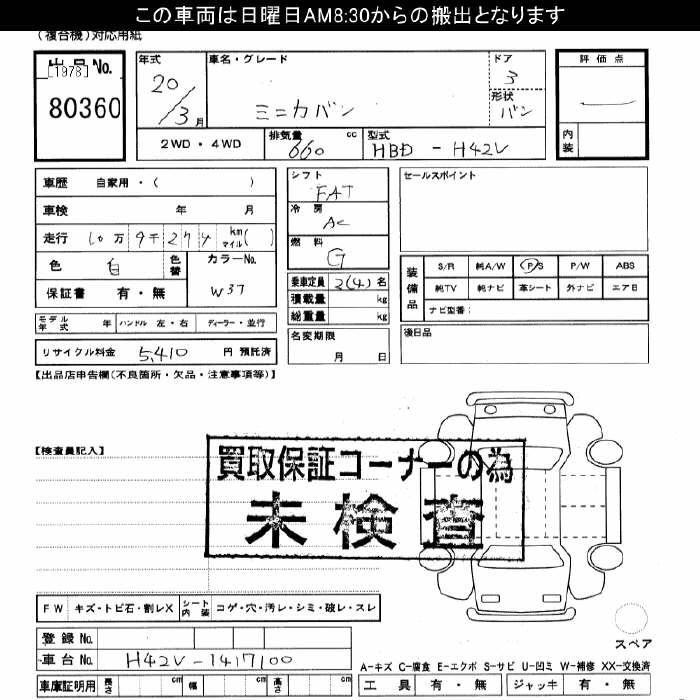 この車両は日曜日AM8:30からの搬出となります
(複合機)対応用紙
出品No.
[1978]
80360
年式
20/3月
車名・グレード
ミニカバン
ドア
3
形状
バン
評価点
内装
2WD・4WD
排気量 660 cc
型式 HBD-H42V
車歴 自家用・( )
車検 年 月
走行 10万9千274 km マイル( )
色 白 色替
カラーNo. W37
保証書 有・無
シフト
FAT
冷房
AC
燃料
G
乗車定員 2(4)名
積載量 kg
総重量 kg
名変期限
月 日
セールスポイント
装備品
S/R 純A/W P/S P/W ABS
純TV 純ナビ 革シート 外ナビ エアB
ナビ型番:
後日品
モデル年式 年 ハンドル 左・右 ディーラー・並行
リサイクル料金 5,410 円 預託済
【出品店申告欄(不良箇所・欠品・注意事項等)】
【検査員記入】
買取保証コーナーの為
未検査
FW キズ・トビ石・割レX シート内装 コゲ・穴・汚レ・シミ・破レ・スレ
登録No.
車台No. H42V-1417100
車庫証明用 長さ cm 幅 cm 高さ cm
スペア
A-キズ C-腐食 E-エクボ S-サビ U-凹ミ W-補修 XX-交換済
工具 有・無 ジャッキ 有・無